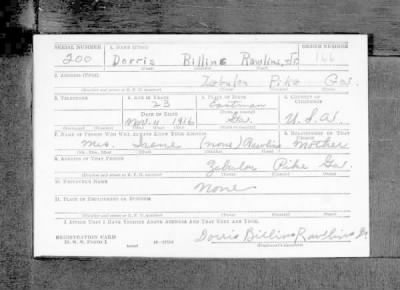 SERIAL NUMBER 1. NAME (Print) ORDER NUMBER
200 Dorris Billins Rawlins, Jr 166
(First) (Middle) (Last)
2. ADDRESS (Print)
Zebulon Pike Ga.
3. TELEPHONE 4. AGE IN YEARS 5. PLACE OF BIRTH 6. COUNTRY OF CITIZENSHIP
23 Eastman
DATE OF BIRTH
Nov. 4 1916 Ga. U.S.A.
7. NAME OF PERSON WHO WILL ALWAYS KNOW YOUR ADDRESS 8. RELATIONSHIP OF THAT PERSON
Mrs. Irene (none) Rawlins Mother
9. ADDRESS OF THAT PERSON
Zebulon Pike Ga.
10. EMPLOYER'S NAME
None
11. PLACE OF EMPLOYMENT OR BUSINESS
I AFFIRM THAT I HAVE VERIFIED ABOVE ANSWERS AND THAT THEY ARE TRUE.
REGISTRATION CARD
D. S. S. FORM 1 Dorris Billins Rawlins Jr
(Registrant's signature)